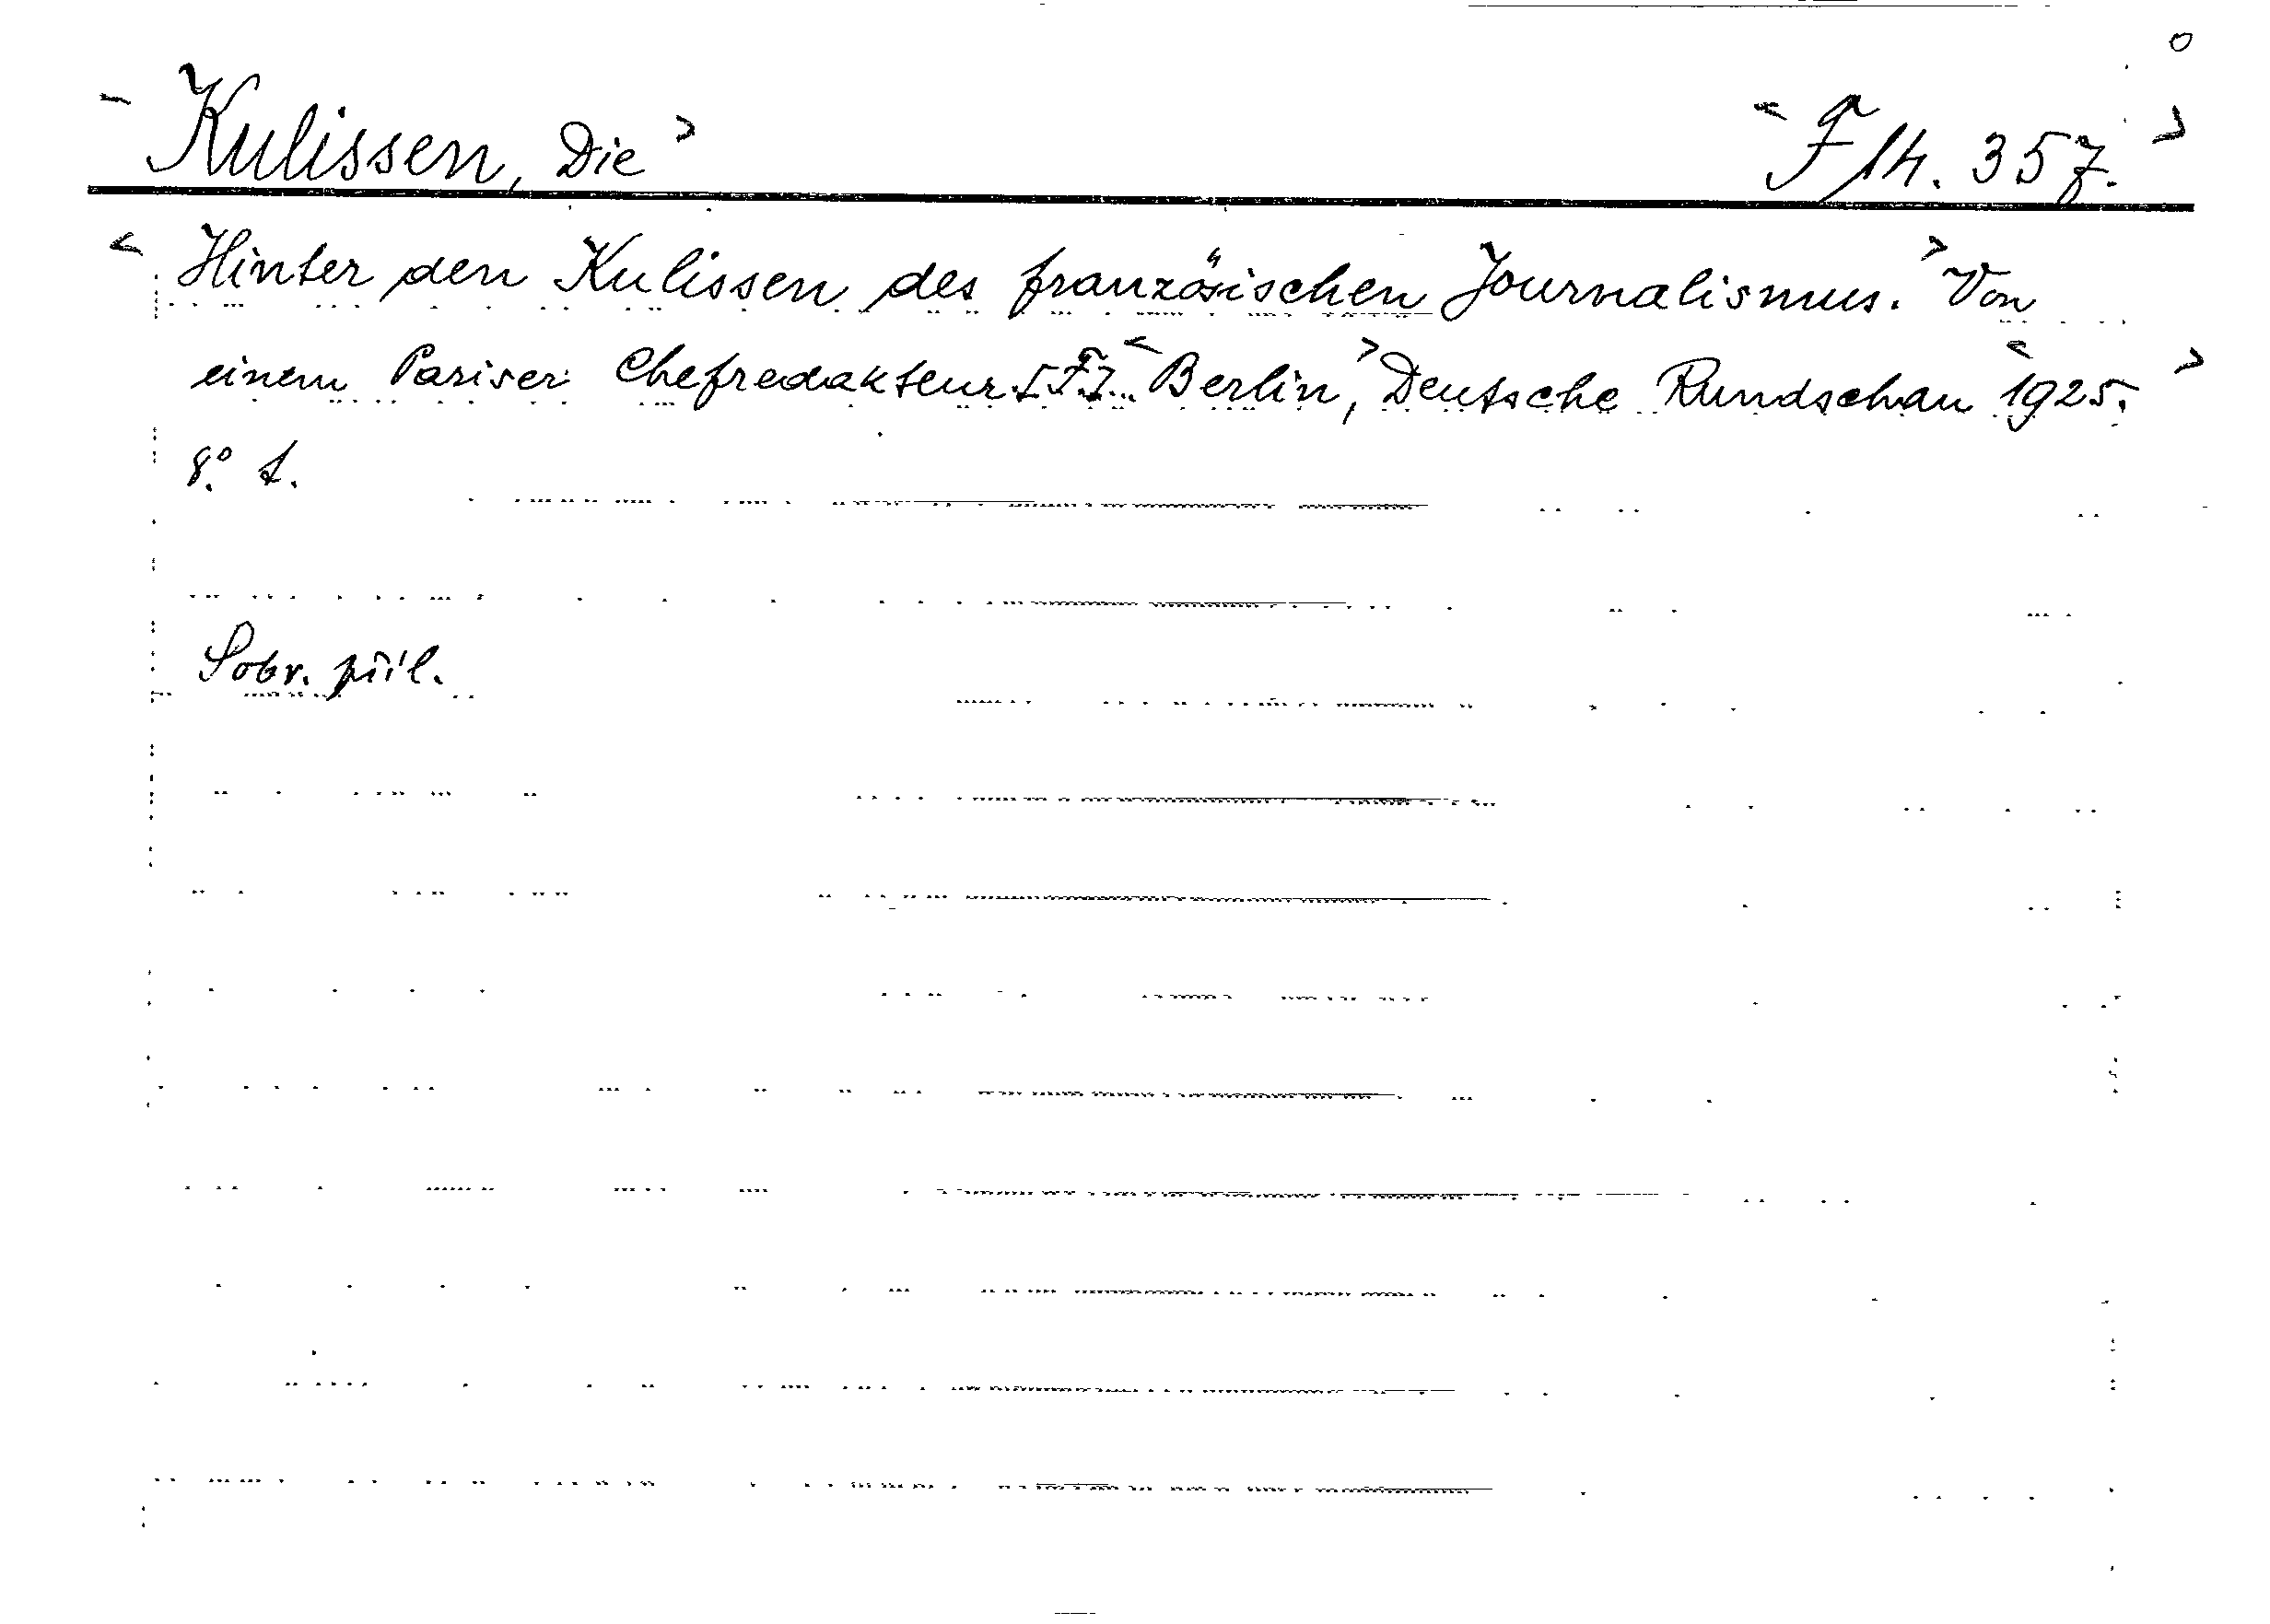 <Kulissen, Die> <F 14. 357.>
<Hinter den Kulissen des französischen Journalismus.> Von
einem Pariser Chefredakteur. [F.] <Berlin,> Deutsche Rundschau <1925.>
8.° 1.
Sobr. piil.